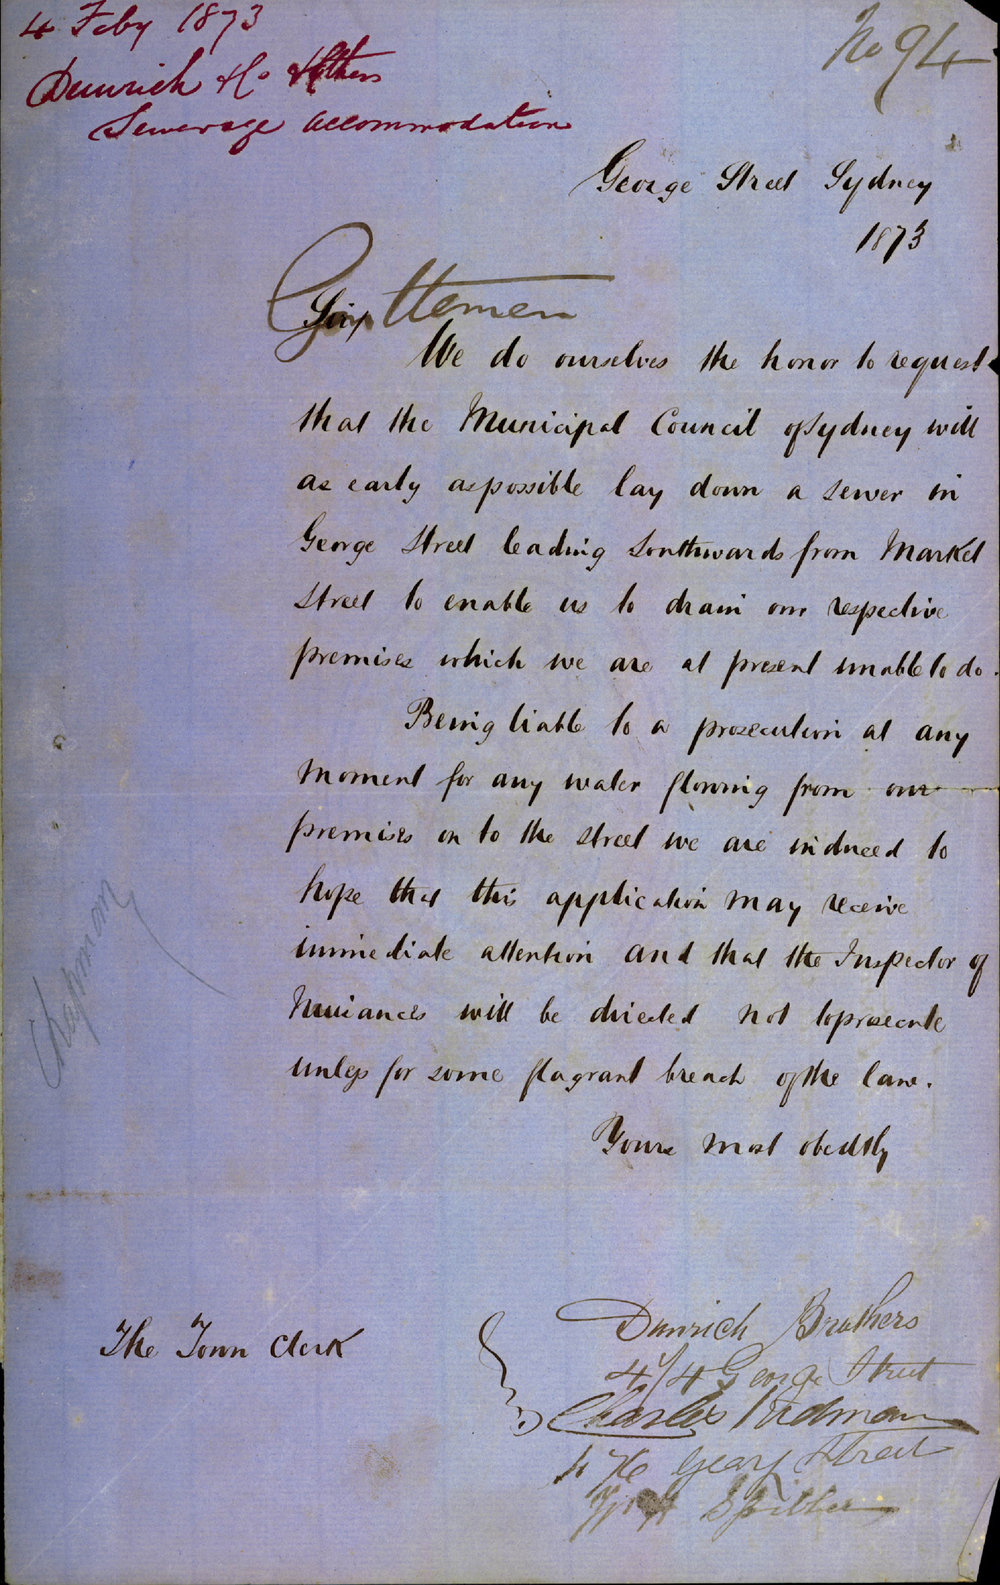 4 Feby 1873
No 94
& others
Sewerage accommodation
George Street Sydney
1873
Gentlemen
We do ourselves the honor to request
that the Municipal Council of Sydney will
as early as possible lay down a sewer in
George Street leading Southwards from Market
Street to enable us to drain our respective
premises which we are at present unable to do.
Being liable to a prosecution at any
moment for any water flowing from our
premises on to the street we are induced to
hope that this application may receive
immediate attention and that the Inspector of
Nuiances will be directed not to prosecute
unless for some flagrant breach of the law.
Yours most obedtly
Chapman
The Town Clerk
Dunrich Brothers
414 George Street
Charles Tidman
George Street
Spiller